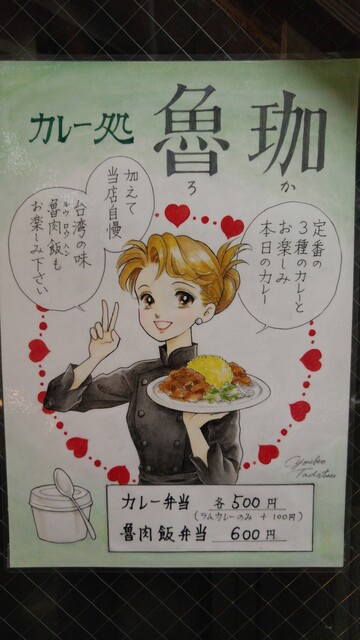 カレー処 魯珈
ろ か
定番の
3種のカレーと
お楽しみ
本日のカレー
加えて
当店自慢
台湾の味
魯肉飯も
ルウ ロウ ハン
お楽しみ下さい
カレー弁当 各500円
(ラムカレーのみ +100円)
魯肉飯弁当 600円